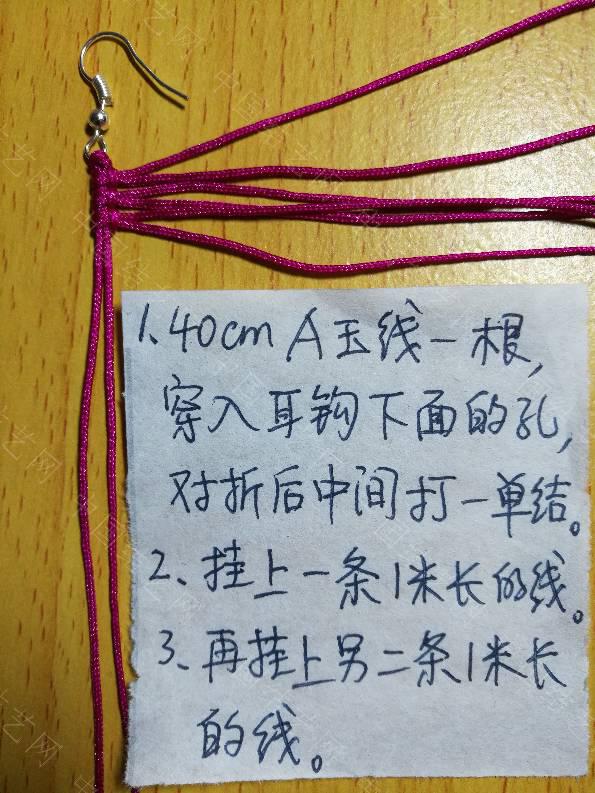 1. 40cm A玉线一根,
穿入耳钩下面的孔,
对折后中间打一单结。
2、挂上一条1米长的线。
3、再挂上另二条1米长
的线。